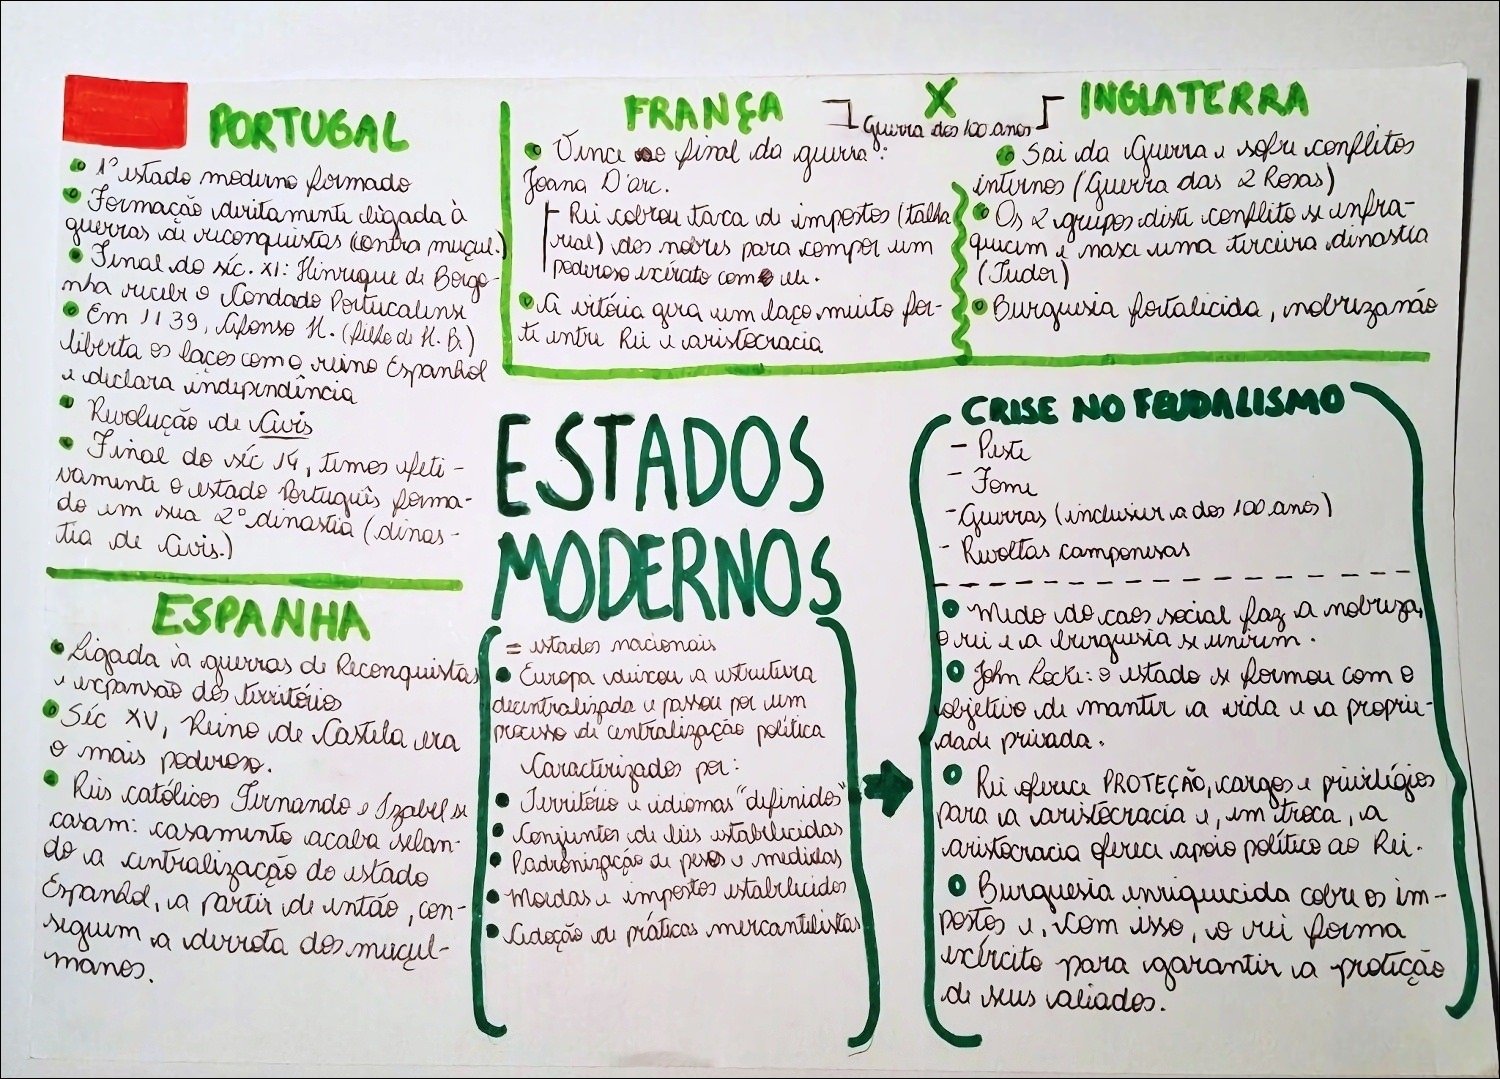 PORTUGAL
1º estado moderno formado
Formação diretamente ligada à
guerras de reconquistas (contra muçul.)
Final do séc. XI: Henrique de Borgo-
nha recebe o Condado Portucalense
Em 1139, Afonso H. (filho de H. B.)
liberta os laços com o reino Espanhol
e declara independência
Revolução de Avis
Final do séc 14, temos efeti-
vamente o estado Português forma-
do em sua 2º dinastia (dinas-
tia de Avis.)
ESPANHA
Ligada à guerras de Reconquistas
e expansão dos territórios
Séc XV, Reino de Castela era
o mais poderoso.
Reis católicos Fernando e Izabel se
casam: casamento acaba selan-
do a centralização do estado
Espanhol, a partir de então, con-
seguem a derrota dos muçul-
manos.
FRANÇA X INGLATERRA
Guerra dos 100 anos
Vence ao final da guerra:
Joana D'arc.
Rei cobrou taxa de impostos (talha
real) dos nobres para compor um
poderoso exército com ele.
A vitória gera um laço muito for-
te entre Rei e aristocracia
Sai da Guerra e sofre conflitos
internos (Guerra das 2 Rosas)
Os 2 grupos deste conflito se enfra-
quecem e nasce uma terceira dinastia
(Tudor)
Burguesia fortalecida, nobreza não
ESTADOS
MODERNOS
= estados nacionais
Europa deixou a estrutura
decentralizada e passou por um
processo de centralização política
Caracterizados por:
Território e idiomas "definidos"
Conjuntos de leis estabelecidas
Padronização de pesos e medidas
Moedas e impostos estabelecidos
Adoção de práticas mercantilistas
CRISE NO FEUDALISMO
- Peste
- Fome
- Guerras (inclusive a dos 100 anos)
- Revoltas camponesas
Medo do caos social faz a nobreza,
o rei e a burguesia se unirem.
John Locke: o estado se formou com o
objetivo de manter a vida e a proprie-
dade privada.
Rei oferece PROTEÇÃO, cargos e privilégios
para a aristocracia e, em troca, a
aristocracia oferece apoio político ao Rei.
Burguesia enriquecida cobre os im-
postos e, com isso, o rei forma
exército para garantir a proteção
de seus aliados.